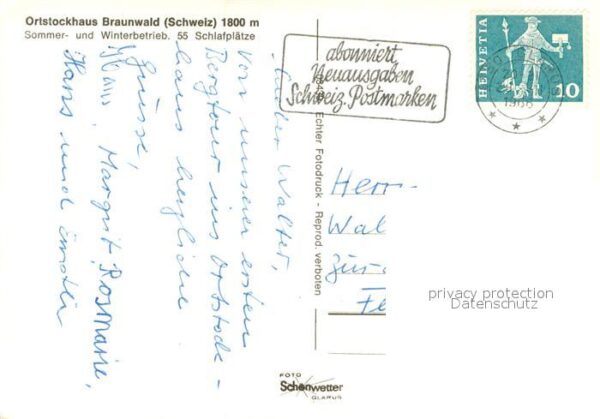 Ortstockhaus Braunwald (Schweiz) 1800 m
Sommer- und Winterbetrieb. 55 Schlafplätze
abonniert
Neuausgaben
Schweiz. Postmarken
HELVETIA
10
1968
Lieber Walter,
Von unserer ersten
Bergtour ins Ortstock-
haus herzliche
Grüsse,
Klaus, Margrit, Rosmarie,
Hans und
Echter Fotodruck - Reprod. verboten
Herr
Wal
Zür
Fe
privacy protection
Datenschutz
FOTO
Schönwetter
GLARUS